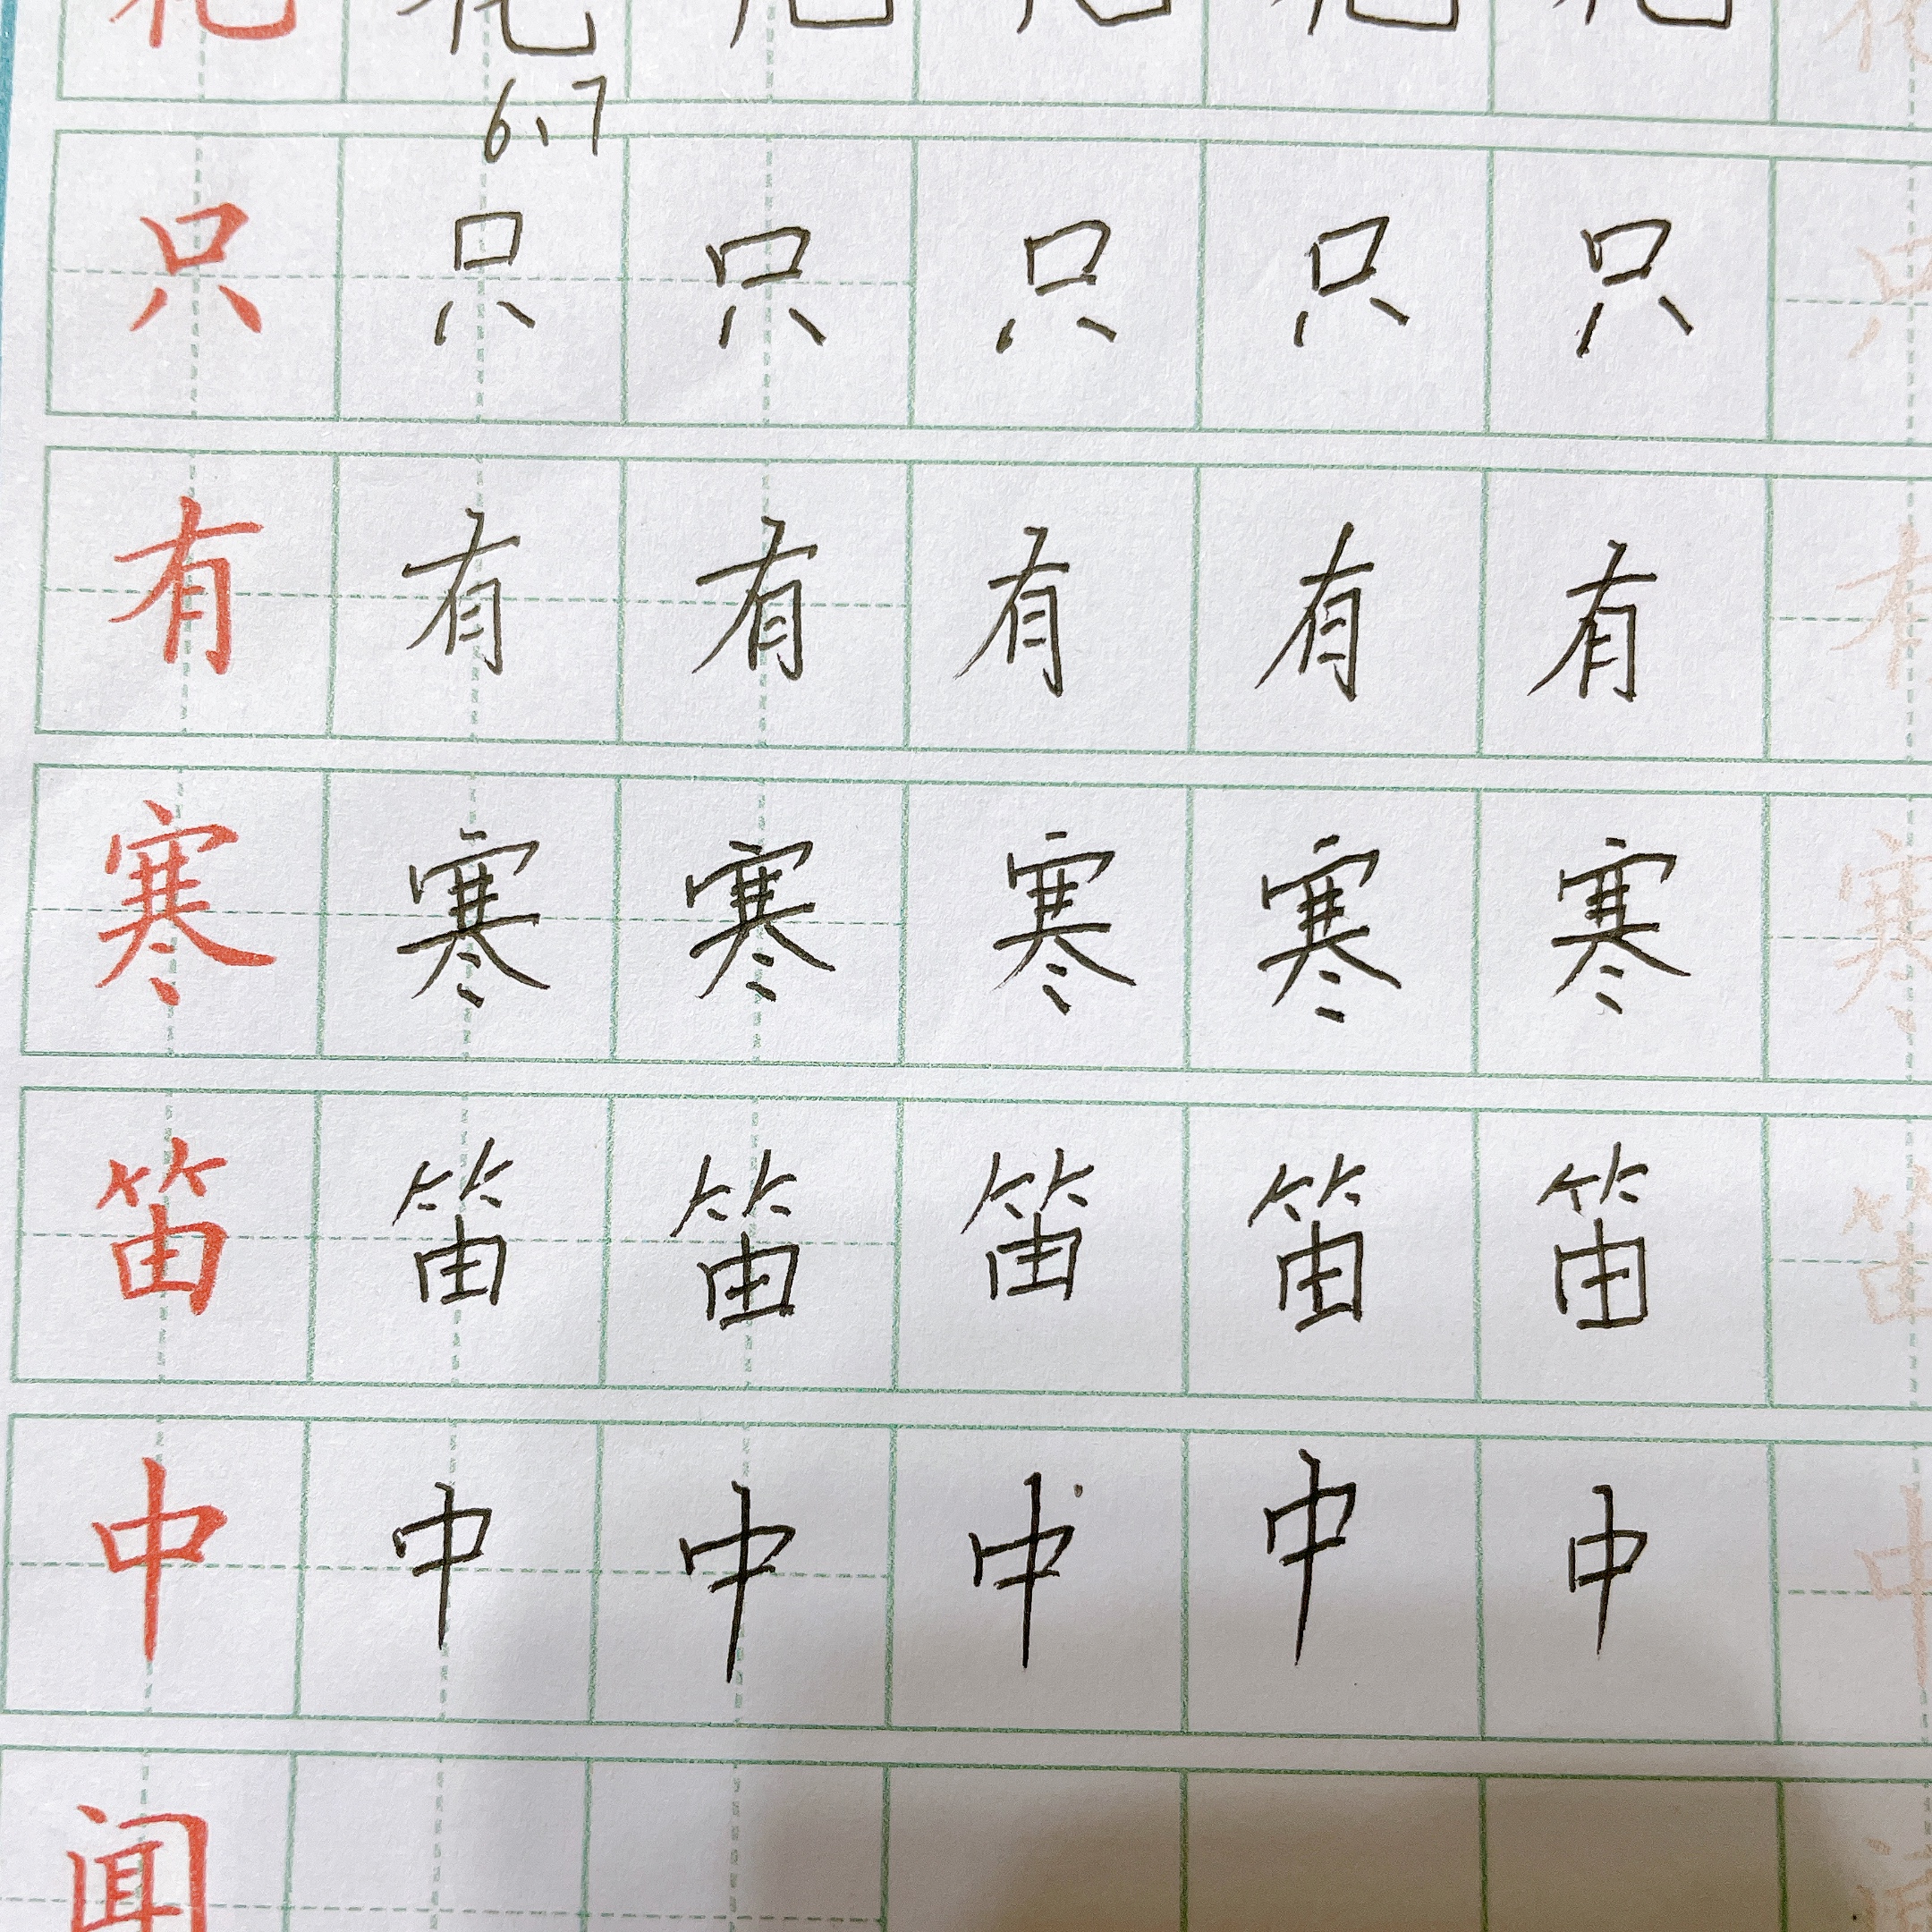 花 花 花 花 花 花 花
6、7
只 只 只 只 只 只 只
有 有 有 有 有 有 有
寒 寒 寒 寒 寒 寒 寒
笛 笛 笛 笛 笛 笛 笛
中 中 中 中 中 中 中
闻